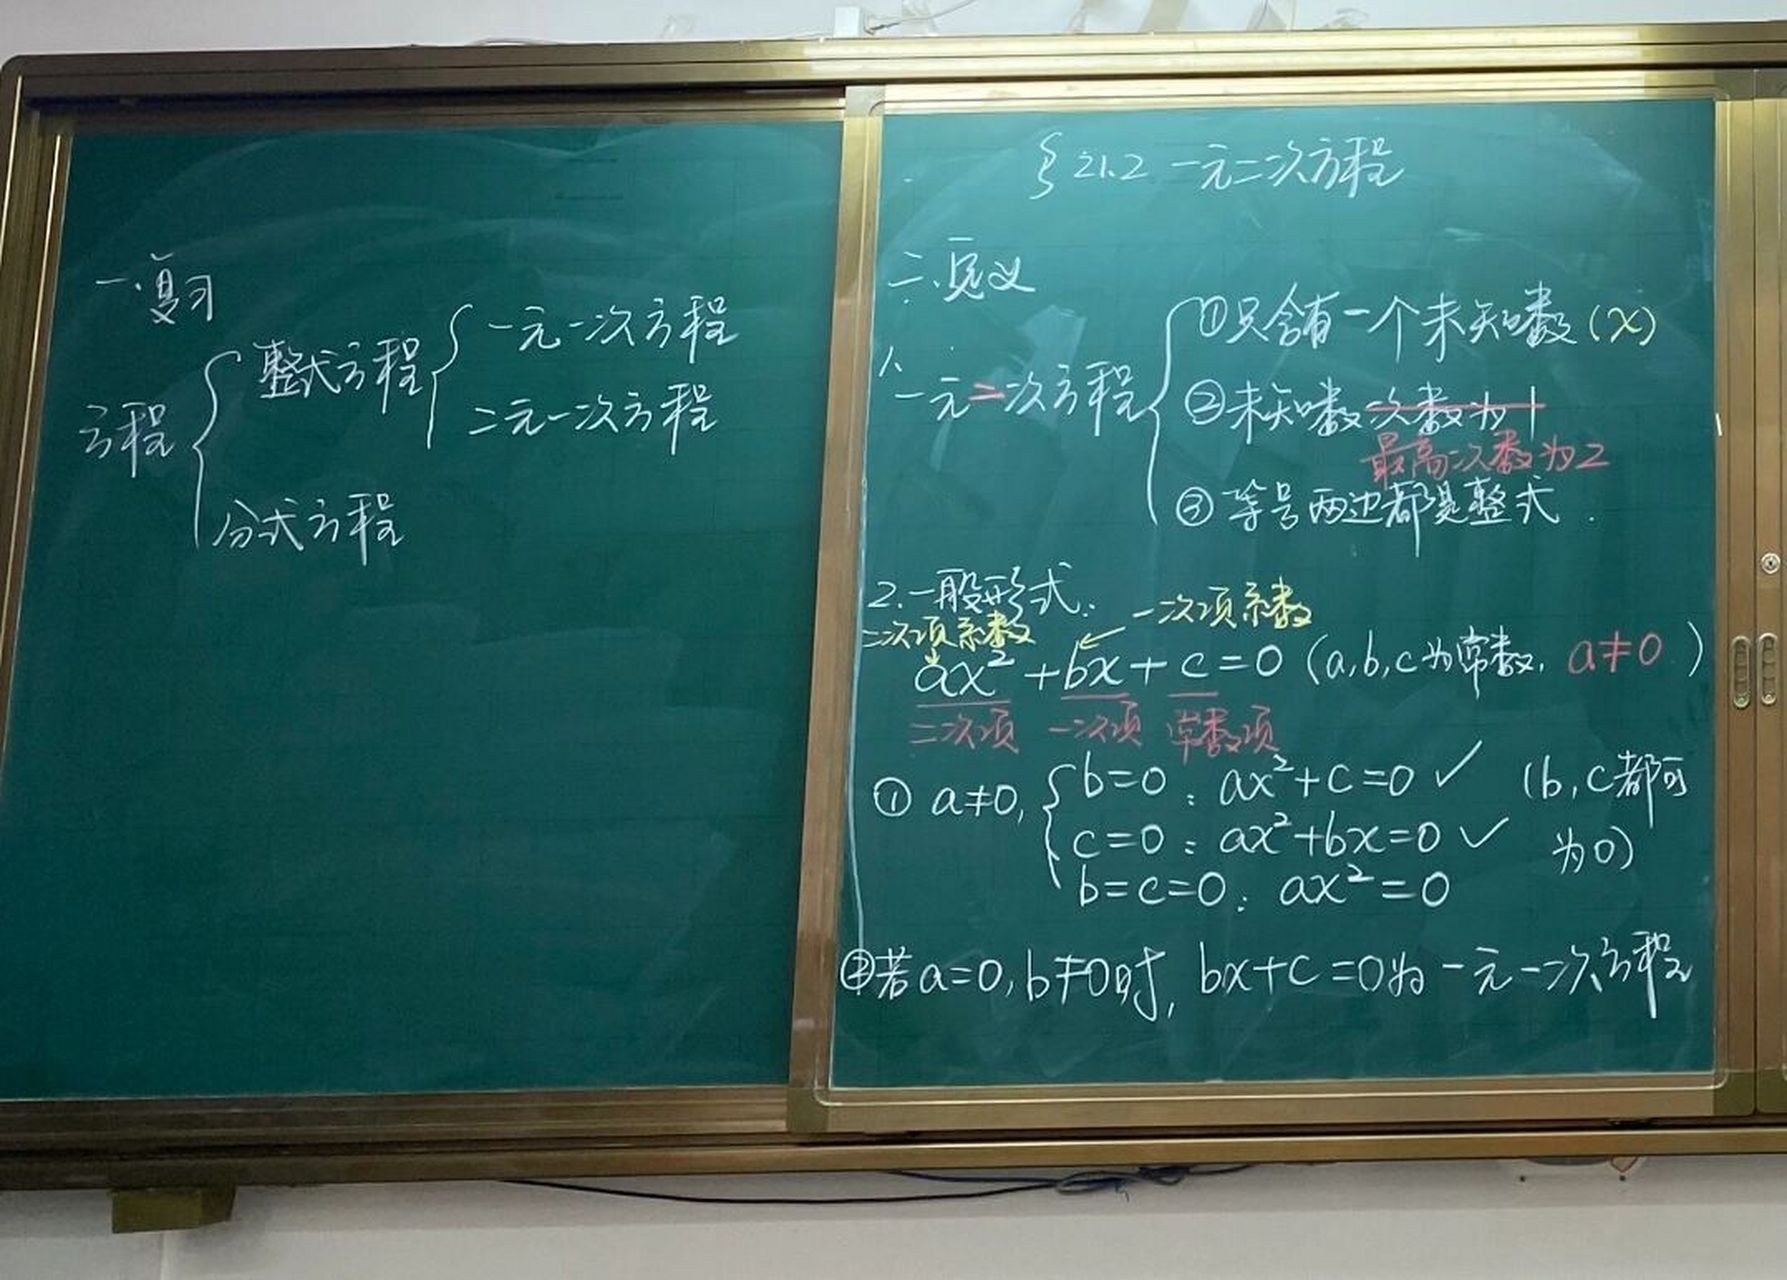 一.复习
方程
整式方程
一元一次方程
二元一次方程
分式方程
§21.2 一元二次方程
二.定义
1.
一元二次方程
①只含有一个未知数(x)
②未知数次数为1
最高次数为2
③等号两边都是整式.
2.一般形式:
二次项系数
一次项系数
ax²+bx+c=0 (a,b,c为常数, a≠0)
二次项 一次项 常数项
① a≠0,
b=0: ax²+c=0 ✓
c=0: ax²+bx=0 ✓
b=c=0: ax²=0
(b,c都可
为0)
②若a=0,b≠0时, bx+c=0为一元一次方程